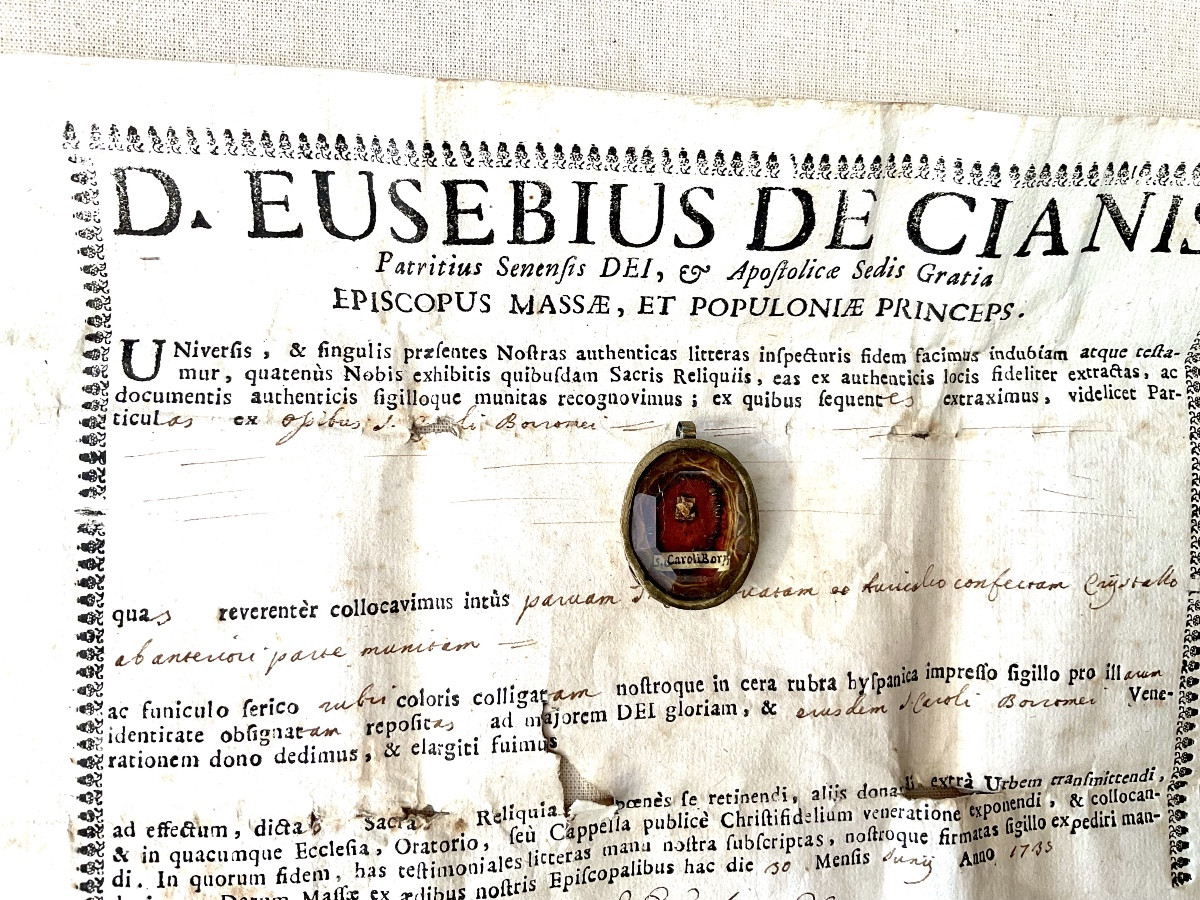 D. EUSEBIUS DE CIANIS
Patritius Senenſis DEI, & Apoſtolicæ Sedis Gratia
EPISCOPUS MASSÆ, ET POPULONIÆ PRINCEPS.
UNiverſis, & ſingulis præſentes Noſtras authenticas litteras inſpecturis fidem facimus indubiam atque teſta-
mur, quatenùs Nobis exhibitis quibuſdam Sacris Reliquiis, eas ex authenticis locis fideliter extractas, ac
documentis authenticis ſigilloque munitas recognovimus; ex quibus ſequentes extraximus, videlicet Par-
ticulas ex oſsibus S. Caroli Borromei
S. Caroli Borr
quas reverentèr collocavimus intùs parvam confectam Crystallo
ab anteriori parte munitam
ac funiculo ſerico rubri coloris colligatam noſtroque in cera rubra hyſpanica impreſſo ſigillo pro illarum
identitate obſignatam repoſitas ad majorem DEI gloriam, & eiusdem S. Caroli Borromei Vene-
rationem dono dedimus, & elargiti fuimus
ad effectum, dictas Sacras Reliquias pœnès ſe retinendi, alijs donandi extrà Urbem tranſmittendi,
& in quacumque Eccleſia, Oratorio, ſeù Cappella publicè Chriſtifidelium veneratione exponendi, & collocan-
di. In quorum fidem, has teſtimoniales litteras manu noſtra ſubſcriptas, noſtroque firmatas ſigillo expediri man-
Datum Maſſæ ex ædibus noſtris Epiſcopalibus hac die 30 Menſis Junij Anno